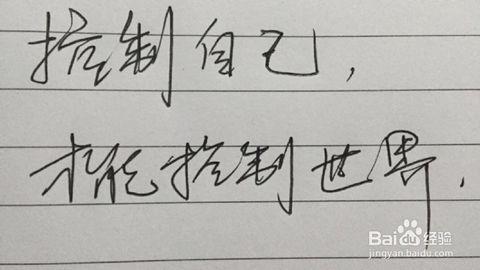 控制自己，
才能控制世界.
Baidu经验
jingyan.baidu.com